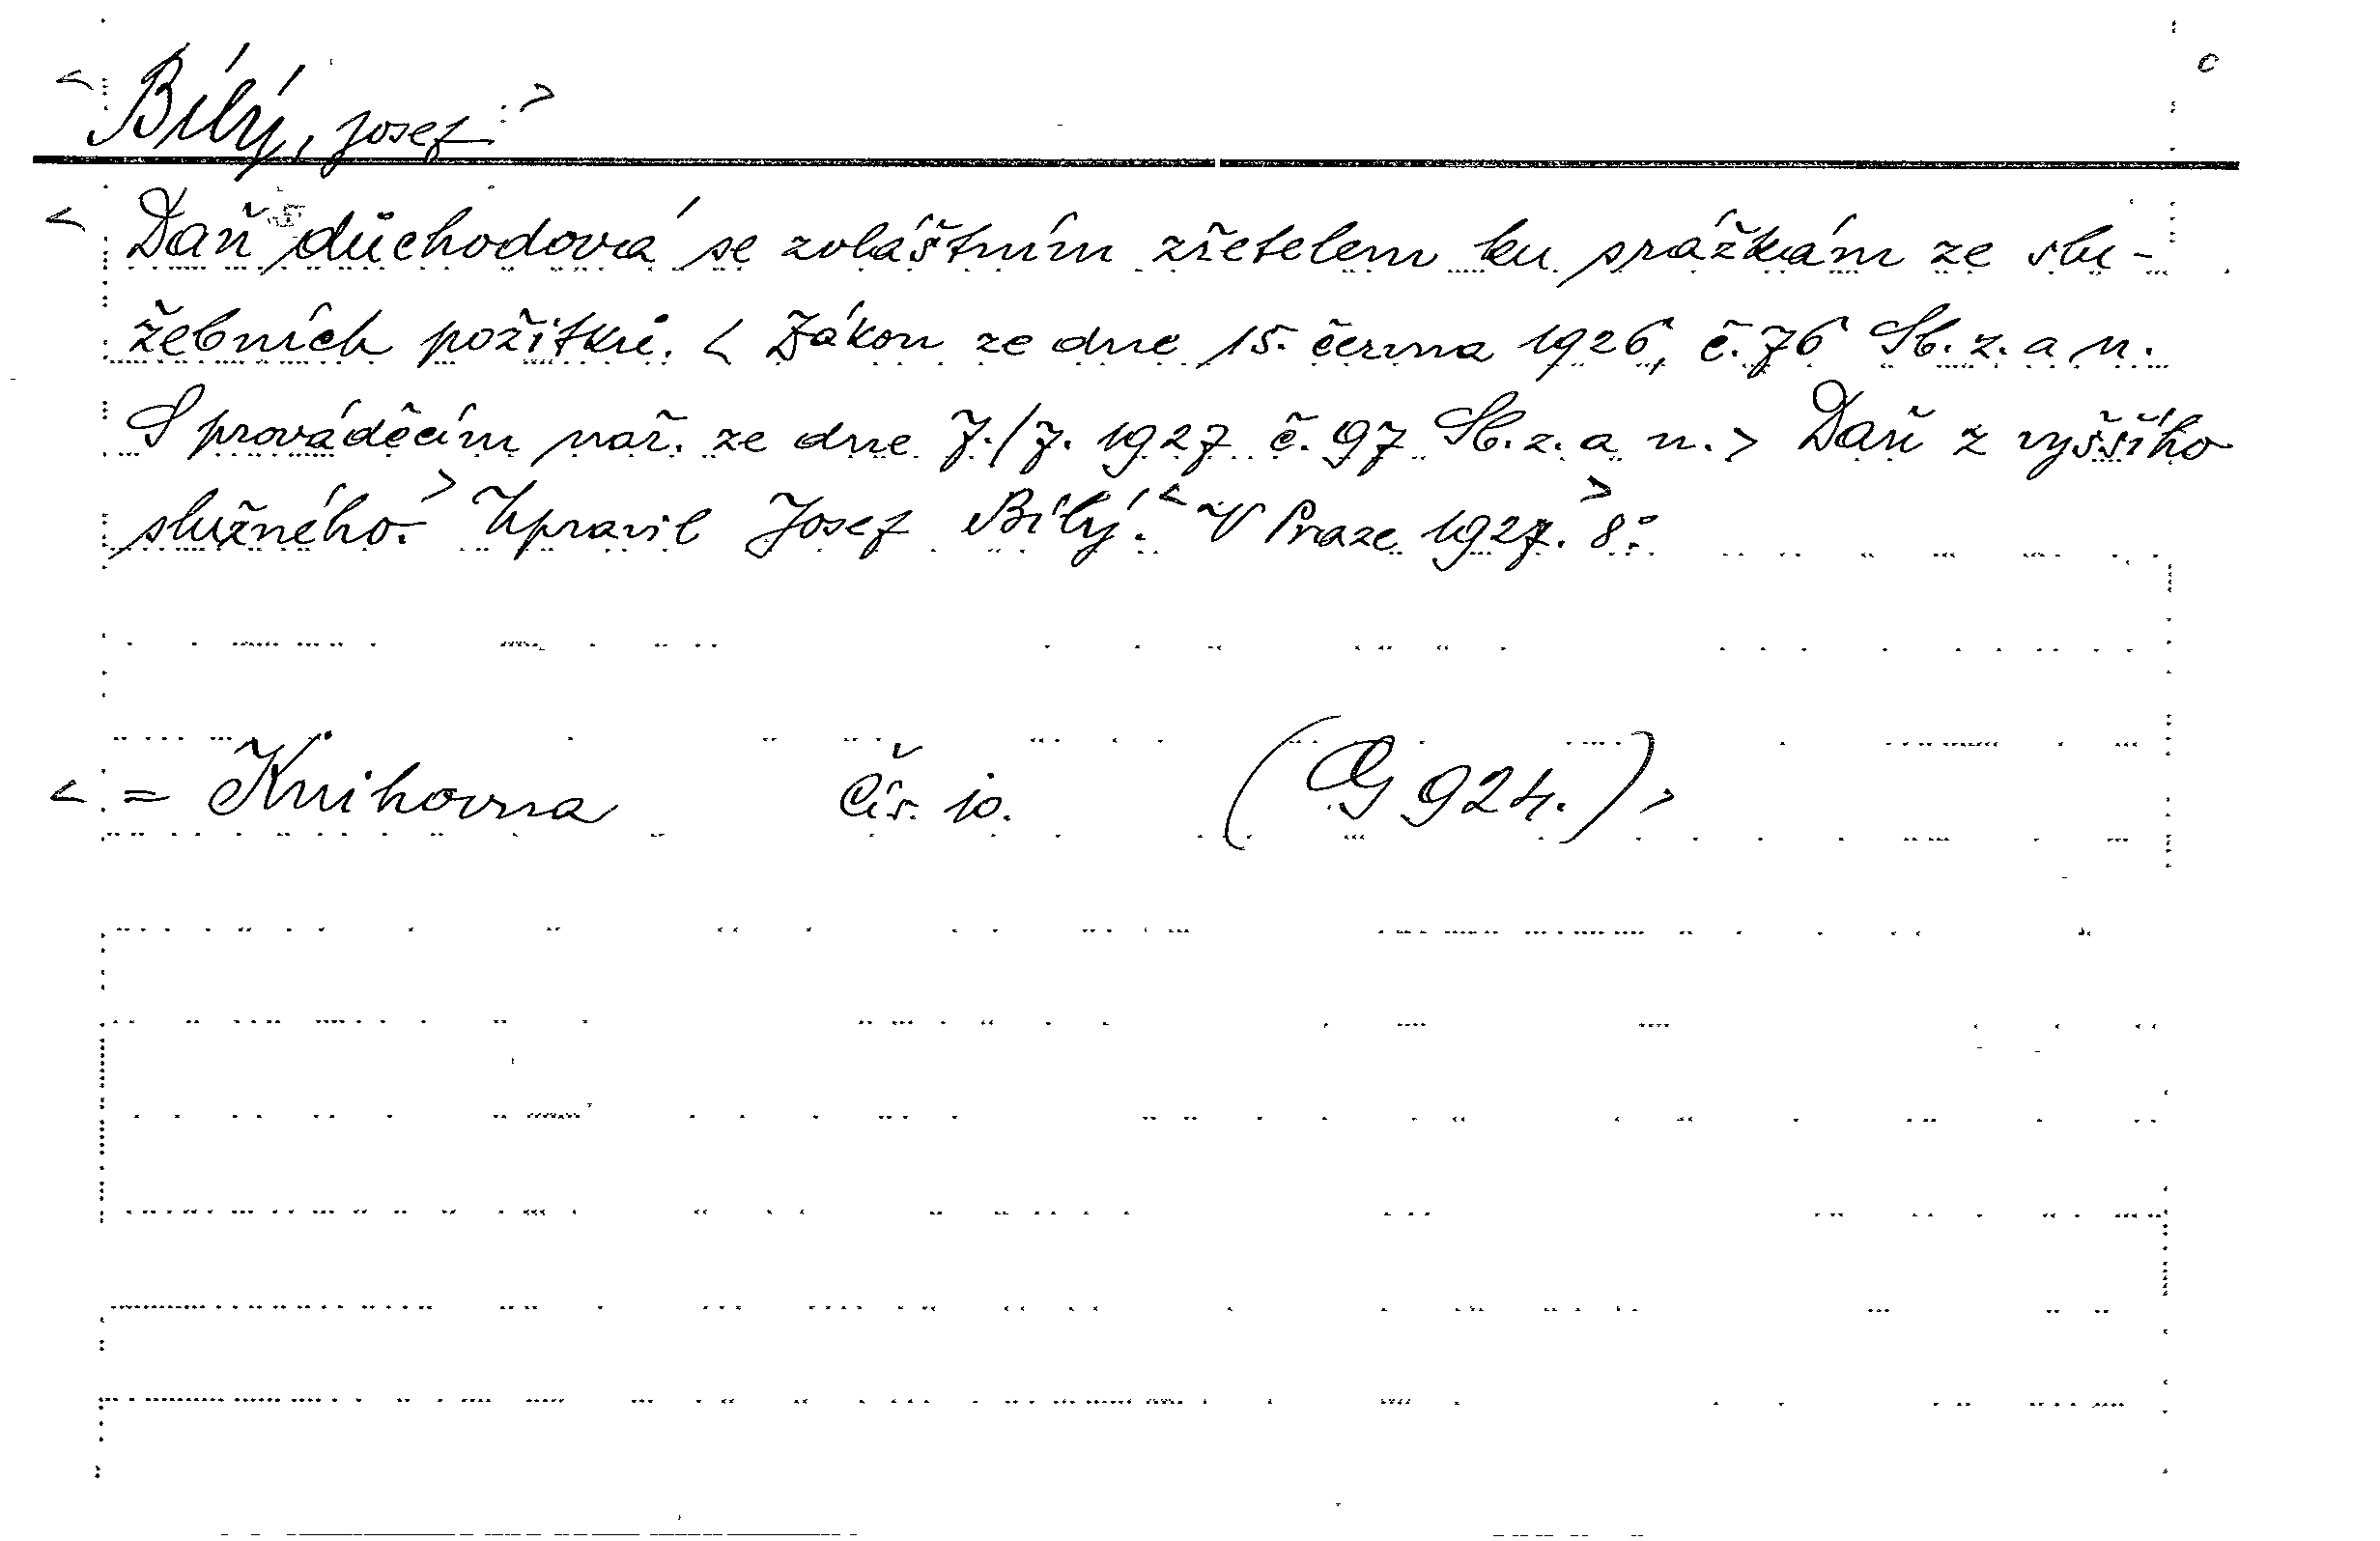 c
< Bílý, Josef >
< Daň důchodová se zvláštním zřetelem ku srážkám ze slu-
žebních požitků. < Zákon ze dne 15. června 1926, č. 76 Sb. z. a n.
S prováděcím nař. ze dne 7./7. 1927 č. 97 Sb. z. a n. > Daň z vyššího
služného. > Upravil Josef Bílý. < V Praze 1927. > 8°.
< = Knihovna Čís. 10. (G 924.) >